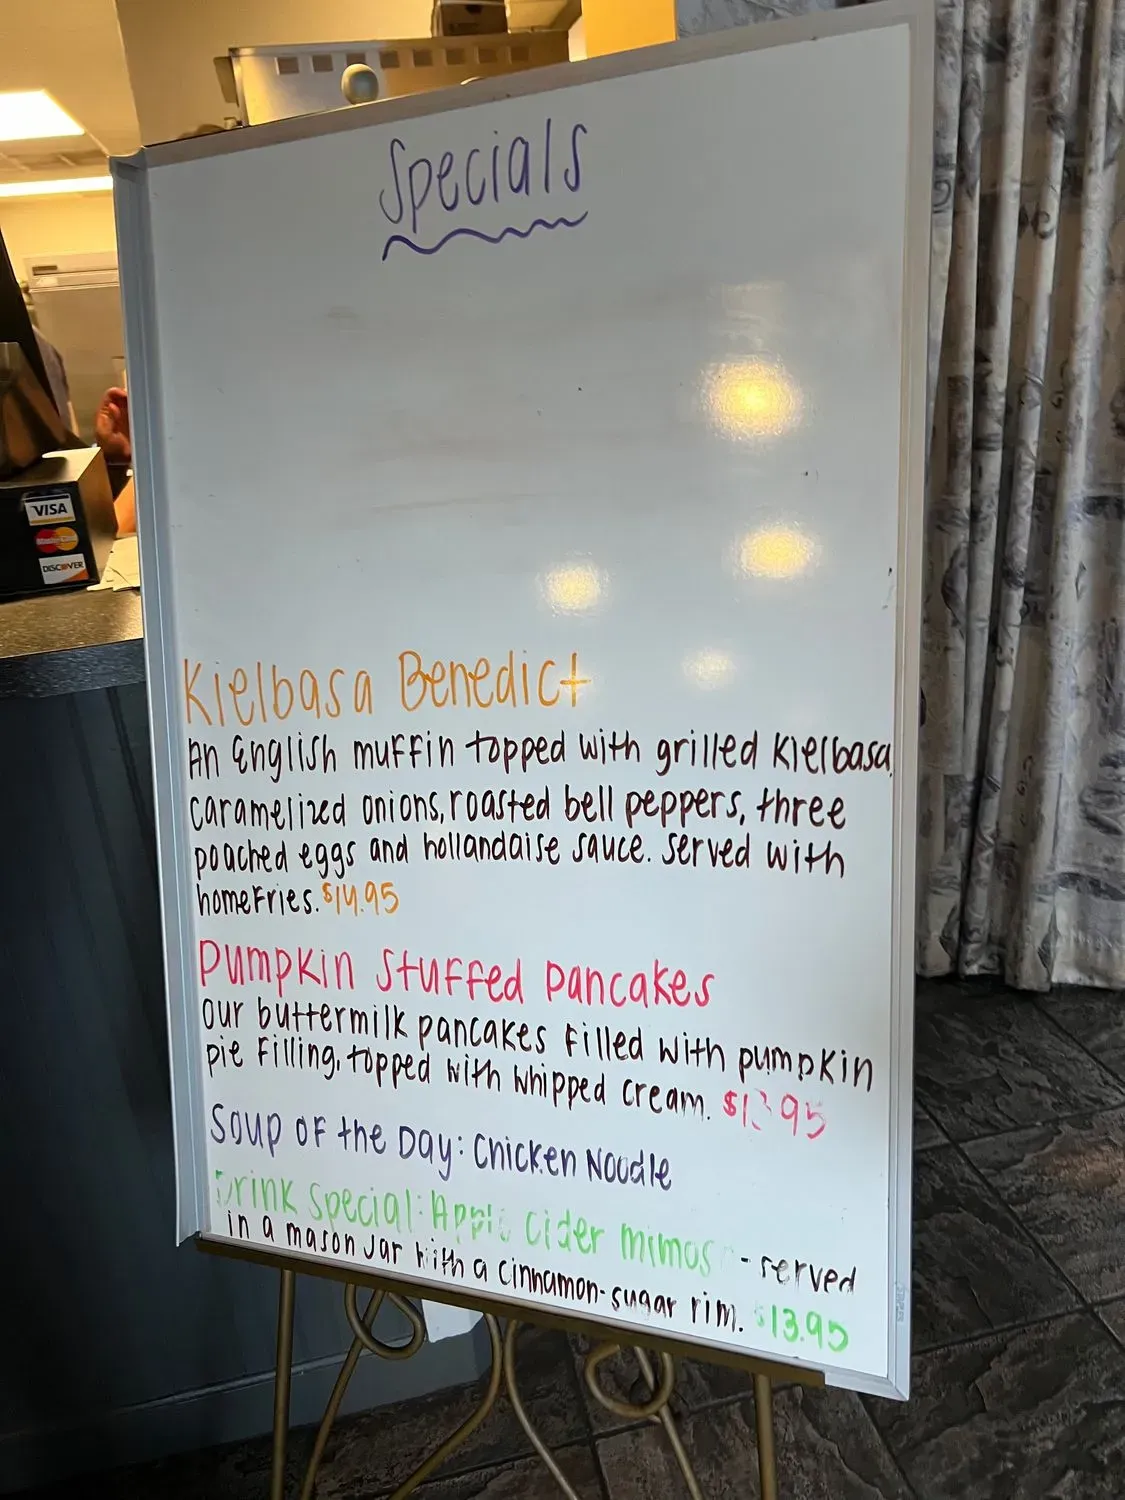 Specials
VISA
MasterCard
DISCOVER
Kielbasa Benedict
An English muffin topped with grilled Kielbasa,
caramelized onions, roasted bell peppers, three
poached eggs and hollandaise sauce. served with
homefries. $14.95
Pumpkin Stuffed Pancakes
Our buttermilk pancakes filled with pumpkin
pie filling, topped with whipped cream. $13.95
Soup of the Day: Chicken Noodle
Drink Special: Apple Cider Mimosa - served
in a mason jar with a cinnamon-sugar rim. $13.95